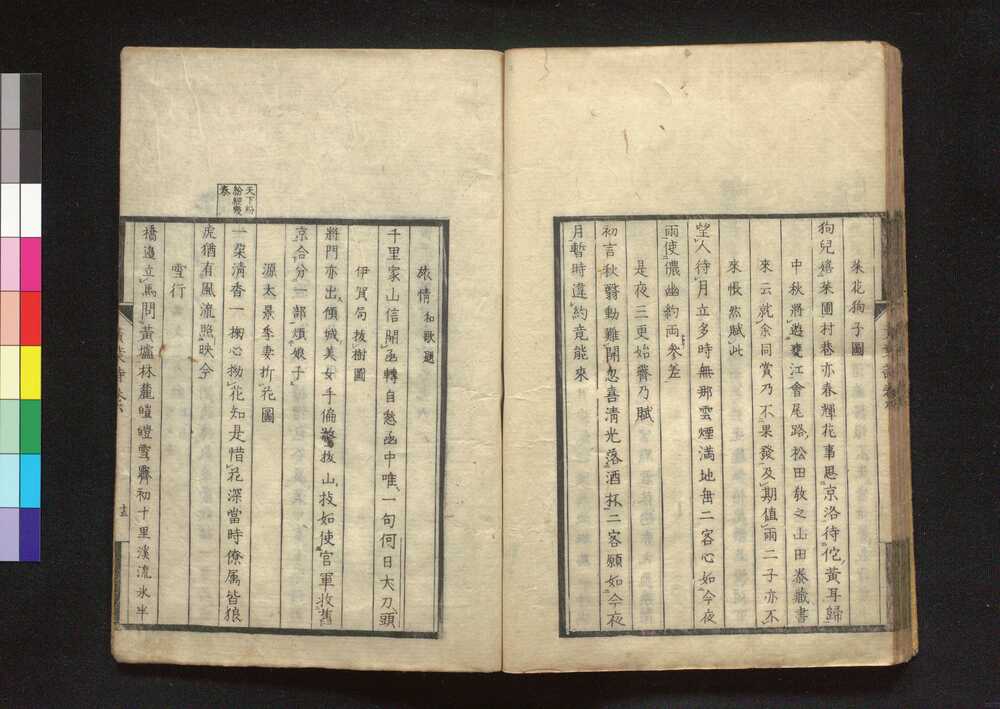 菜花狗子圖
狗兒嬉菜圃村巷亦春輝花事思京洛待佗黄耳歸
中秋將遊甕江會尾路松田敎之山田泰藏書
來云就余同賞乃不果發及期值雨二子亦不
來悵然賦此
望人待月立多時無那雲煙滿地垂二客心如今夜
雨使儂幽約兩參差
是夜三更始霽乃賦
初言秋翳動難開忽喜清光落酒杯二客願如今夜
月暫時違約竟能來
旅情和歌題
千里家山信開函轉自愁函中唯一句何日大刀頭
伊賀局拔樹圖
將門亦出傾城美女手偏驚拔山技如使官軍收舊
京合分一部煩娘子
源太景季妻折花圖
一朶清香一掬心拗花知是惜花深當時僚属皆狼
虎猶有風流照映今
雪行
橋邉立馬問黄壚林麓暟暟雪霽初十里溪流氷半
天下紛
紛經幾
春